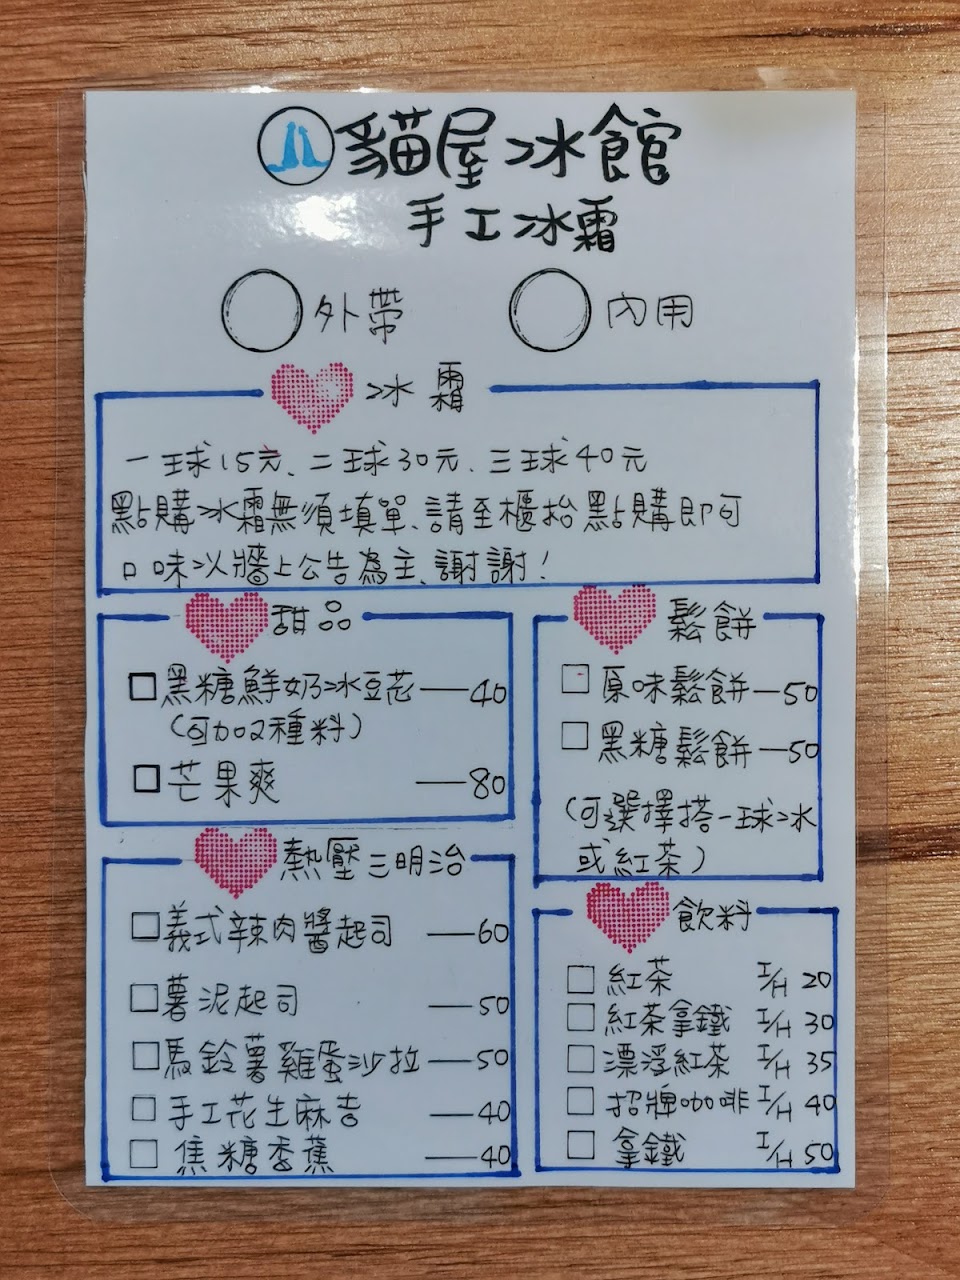 貓屋冰館
手工冰霜
外帶
內用
冰霜
一球15元、二球30元、三球40元
點購冰霜無須填單、請至櫃抬點購即可
口味以牆上公告為主、謝謝!
甜品
黑糖鮮奶冰豆花—40
(可加2種料)
芒果爽 —80
鬆餅
原味鬆餅—50
黑糖鬆餅—50
(可選擇搭一球冰
或紅茶)
熱壓三明治
義式辣肉醬起司 —60
薯泥起司 —50
馬鈴薯雞蛋沙拉—50
手工花生麻吉 —40
焦糖香蕉 —40
飲料
紅茶 I/H 20
紅茶拿鐵 I/H 30
漂浮紅茶 I/H 35
招牌咖啡 I/H 40
拿鐵 I/H 50